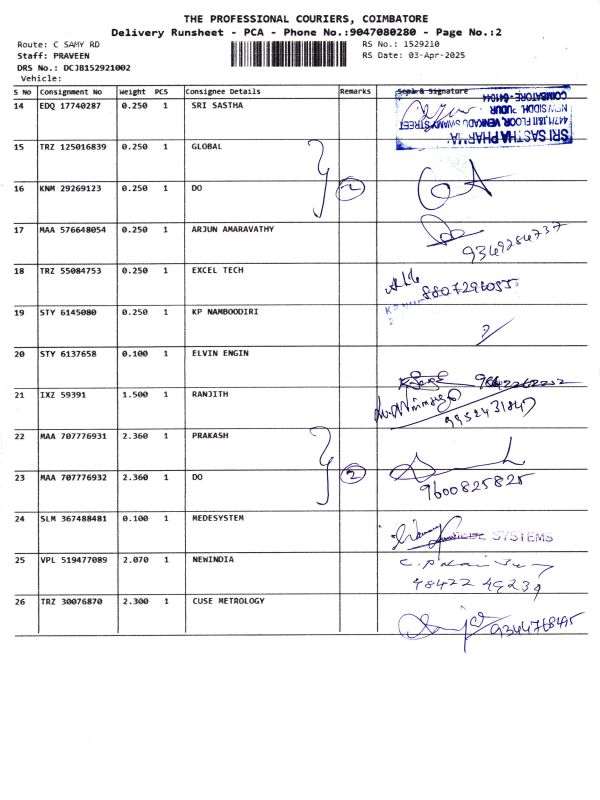 THE PROFESSIONAL COURIERS, COIMBATORE
Delivery Runsheet - PCA - Phone No.:9047080280 - Page No.:2
Route: C SAMY RD
RS No.: 1529210
Staff: PRAVEEN
RS Date: 03-Apr-2025
DRS No.: DCJB152921002
Vehicle:
S No Consignment No Weight PCS Consignee Details Remarks Seal & Signature
14 EDQ 17740287 0.250 1 SRI SASTHA
SRI SASTHA PHARMA
447/1 J&II FLOOR, VENKADU SWAMY STREET
NEW SIDDHAPUDUR
COIMBATORE-641044
15 TRZ 125016839 0.250 1 GLOBAL
16 KNM 29269123 0.250 1 DO 2
17 MAA 576648054 0.250 1 ARJUN AMARAVATHY
9349284737
18 TRZ 55084753 0.250 1 EXCEL TECH
8807296055
19 STY 6145080 0.250 1 KP NAMBOODIRI
20 STY 6137658 0.100 1 ELVIN ENGIN
21 IXZ 59391 1.500 1 RANJITH
9952431847
22 MAA 707776931 2.360 1 PRAKASH
23 MAA 707776932 2.360 1 DO 2
9600825825
24 SLM 367488481 0.100 1 MEDESYSTEM
SYSTEMS
25 VPL 519477089 2.070 1 NEWINDIA
48422 49239
26 TRZ 30076870 2.300 1 CUSE METROLOGY
9344768495